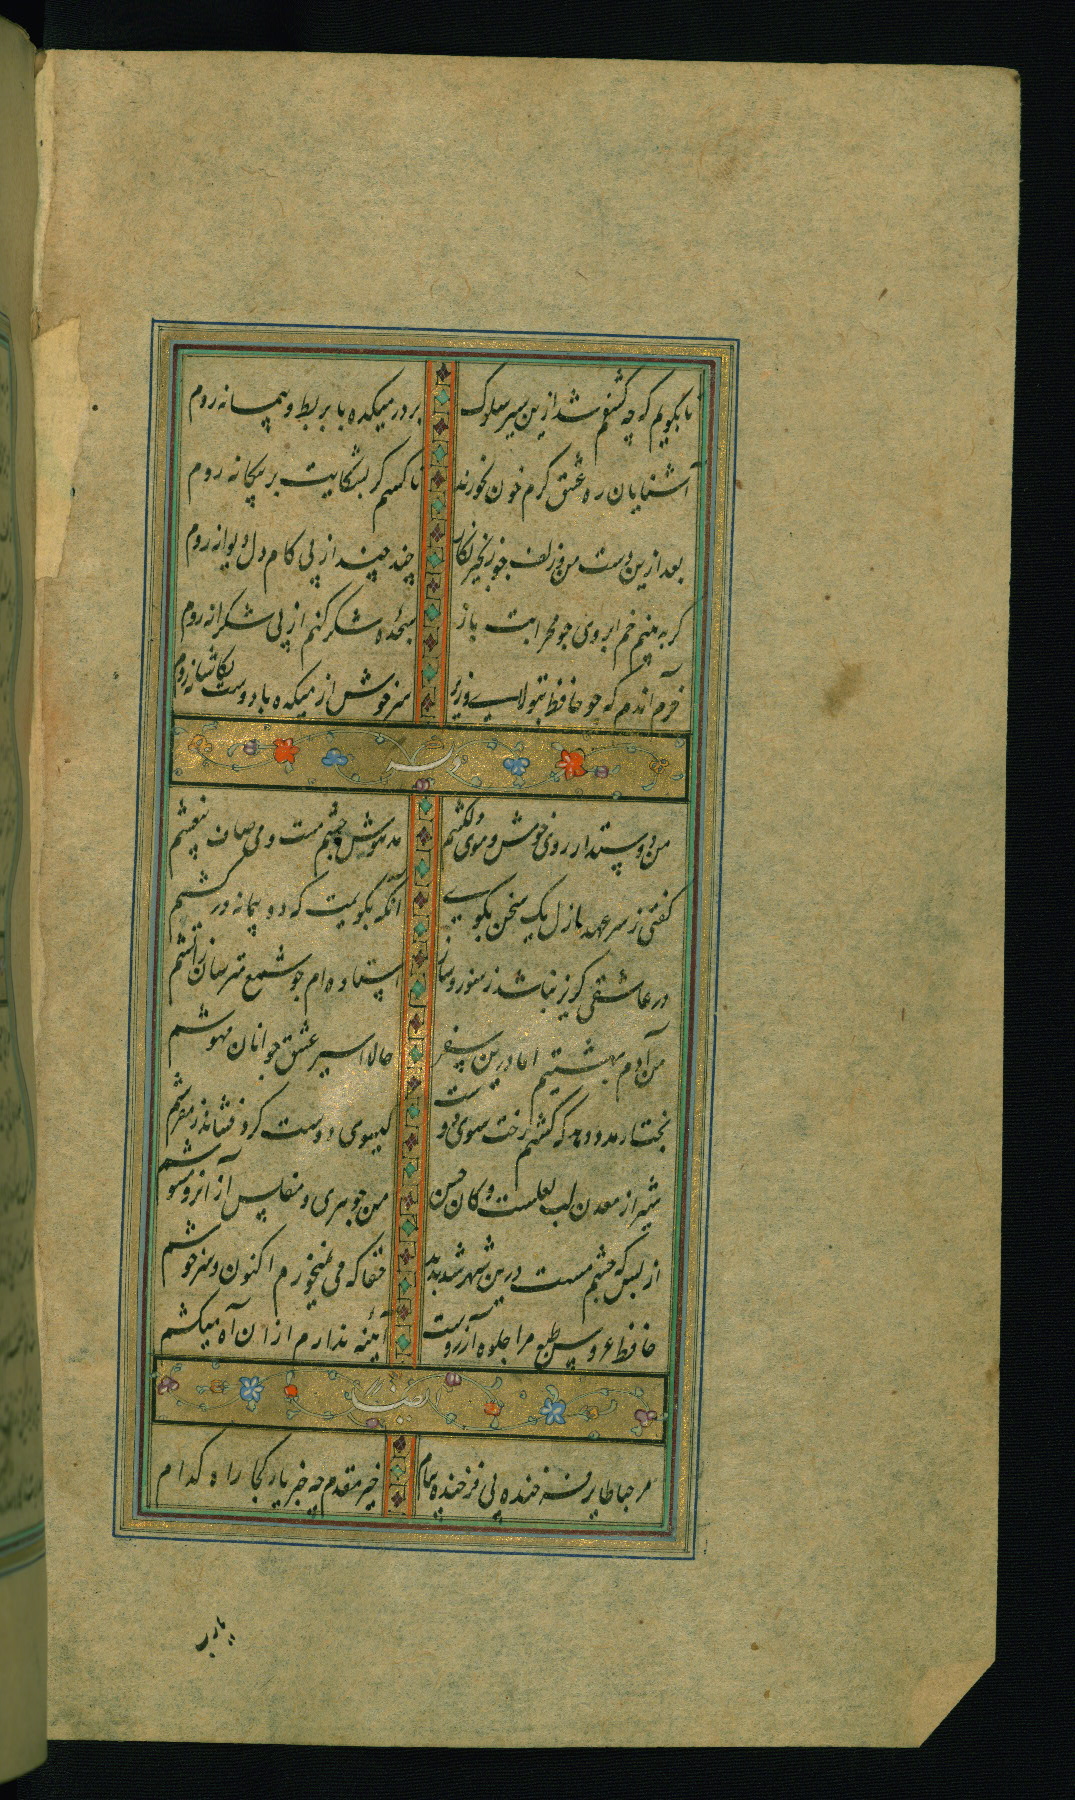 تا بگویم که چه کشفم شد ازین سیر سلوک
بر در میکده با بربط و پیمانه روم
آشنایان ره عشق گرم خون بخورند
ناکسم گر بشکایت بر بیگانه روم
بعد ازین دست من و زلف چو زنجیر نگار
چند چند از پی کام دل دیوانه روم
گر به بینم خم ابروی چو محرابت باز
سجده شکر کنم از پی شکرانه روم
خرم آندم که چو حافظ بتولای وزیر
سرخوش از میکده با دوست بکاشانه روم
وله
من دوستدار روی خوش و موی دلکشم
مدهوش چشم مست و می صاف بیغشم
گفتی ز سر عهد ازل یک سخن بگوی
آنگه بگویمت که دو پیمانه درکشم
در عاشقی گریز نباشد ز سوز و ساز
استاده ام چو شمع مترسان ز آتشم
من آدم بهشتیم اما درین سفر
حالا اسیر عشق جوانان مهوشم
بخت ار مدد دهد که کشم رخت سوی دوست
گیسوی دوست گرد فشاند ز مفرشم
شیراز معدن لب لعلست و کان حسن
من جوهری و مفلس از آنرو مشوشم
از بس که چشم مست درین شهر دیده شد
حقا که می نمیخورم اکنون و سرخوشم
حافظ عروس طبع مرا جلوه آرزوست
آئینه ندارم از ان آه میکشم
ایضا
مرحبا طایر فرخنده پی فرخنده پیام
خیر مقدم چه خبر یار کجا راه کدام
یارب